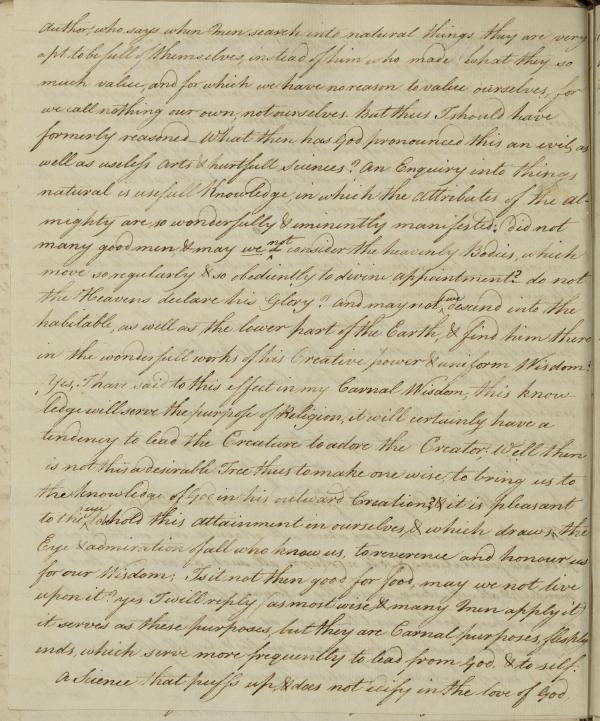 Author, who says when Men search into natural things they are very
apt to be full of themselves, instead of him who made what they so
much value, and for which we have no reason to value ourselves, for
we call nothing our own, not ourselves. But thus I should have
formerly reasoned _ What then has God pronounced this an evil, as
well as useless Arts & hurtfull Sciences? An Enquiry into things
natural is usefull Knowledge, in which the Attributes of the Al-
mighty are so wonderfully & eminently manifested: did not
many good men & may we not consider the heavenly Bodies, which
move so regularly & so obediently to divine appointment? do not
the Heavens declare his Glory? And may not we descend into the
habitable, as well as the lower part of the Earth, & find him there
in the wonderfull works of his Creative power & uniform Wisdom?
Yes; I have said to this effect in my Carnal Wisdom, this know-
ledge will serve the purpose of Religion, it will certainly have a
tendency to lead the Creature to adore the Creator. Well then
is not this a desirable Tree thus to make one wise, to bring us to
the knowledge of God in his outward Creation? & it is pleasant
to the eye to behold this attainment in ourselves, & which draws the
Eye & admiration of all who know us, to reverence and honour us
for our Wisdom; Is it not then good for food, may we not live
upon it? yes I will reply (as most wise & many Men apply it)
it serves as these purposes, but they are Carnal purposes, fleshly
ends, which serve more frequently to lead from God & to self.
A Science that puffs up, & does not edify in the love of God,